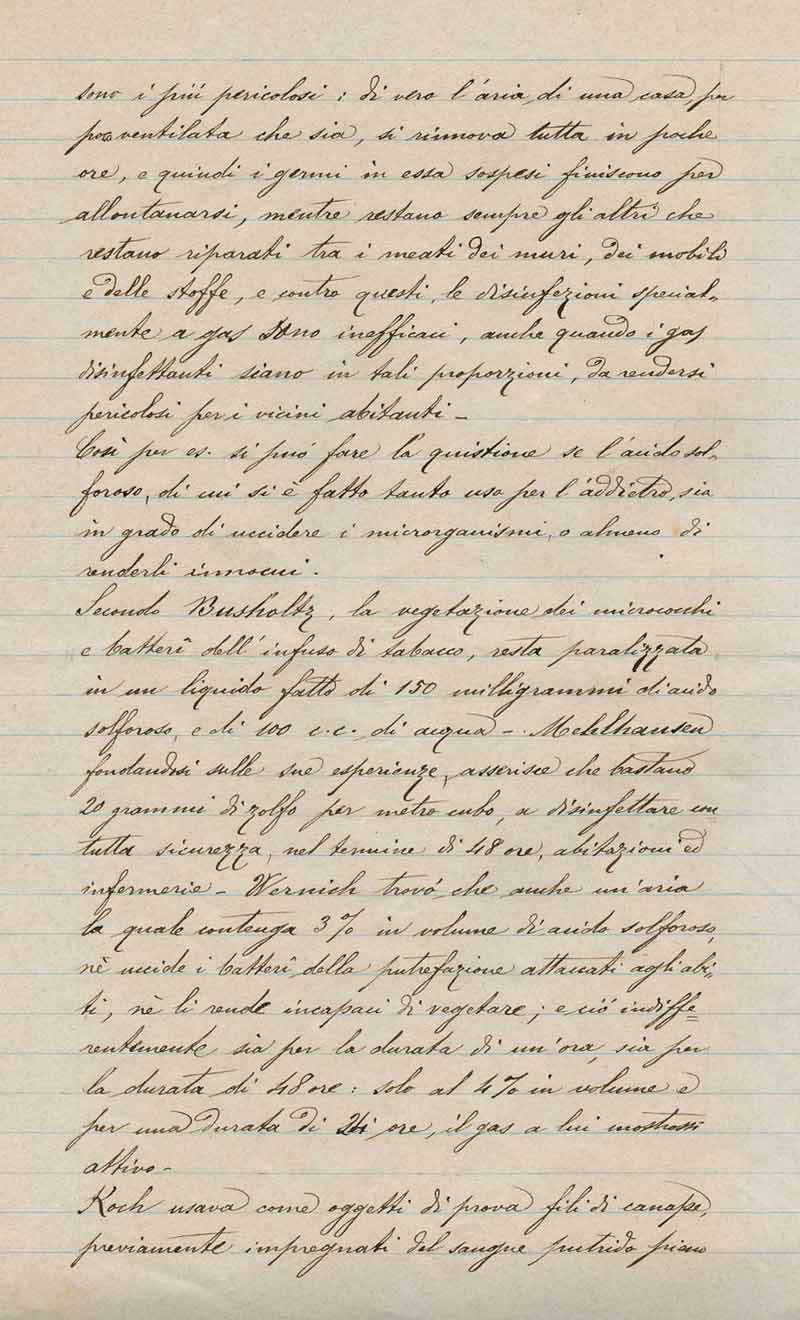 sono i più pericolosi: di vero l'aria di una casa, per
poco ventilata che sia, si rinnova tutta in poche
ore, e quindi i germi in essa sospesi finiscono per
allontanarsi, mentre restano sempre gli altri che
restano riparati tra i meati dei muri, dei mobili
e delle stoffe, e contro questi, le disinfezioni special-
mente a gas sono inefficaci, anche quando i gas
disinfettanti siano in tali proporzioni, da rendersi
pericolosi per i vicini abitanti -
Così per es. si può fare la quistione se l'acido sol-
foroso, di cui si è fatto tanto uso per l'addietro, sia
in grado di uccidere i microrganismi, o almeno di
renderli innocui.
Secondo Busholtz, la vegetazione dei micrococchi
e batterî dell'infuso di tabacco, resta paralizzata
in un liquido fatto di 150 milligrammi di acido
solforoso, e di 100 c.c. di acqua - Mehlhausen
fondandosi sulle sue esperienze, asserisce che bastano
20 grammi di zolfo per metro cubo, a disinfettare con
tutta sicurezza, nel termine di 48 ore, abitazioni ed
infermerie - Wernich trovò che anche un'aria
la quale contenga 3% in volume di acido solforoso,
nè uccide i batterî della putrefazione attaccati agli abi-
ti, nè li rende incapaci di vegetare; e ciò indiffe=
rentemente sia per la durata di un'ora, sia per
la durata di 48 ore: solo al 4% in volume e
per una durata di 24 ore, il gas a lui mostrossi
attivo -
Koch usava come oggetti di prova fili di canape,
previamente impregnati del sangue putrido pieno